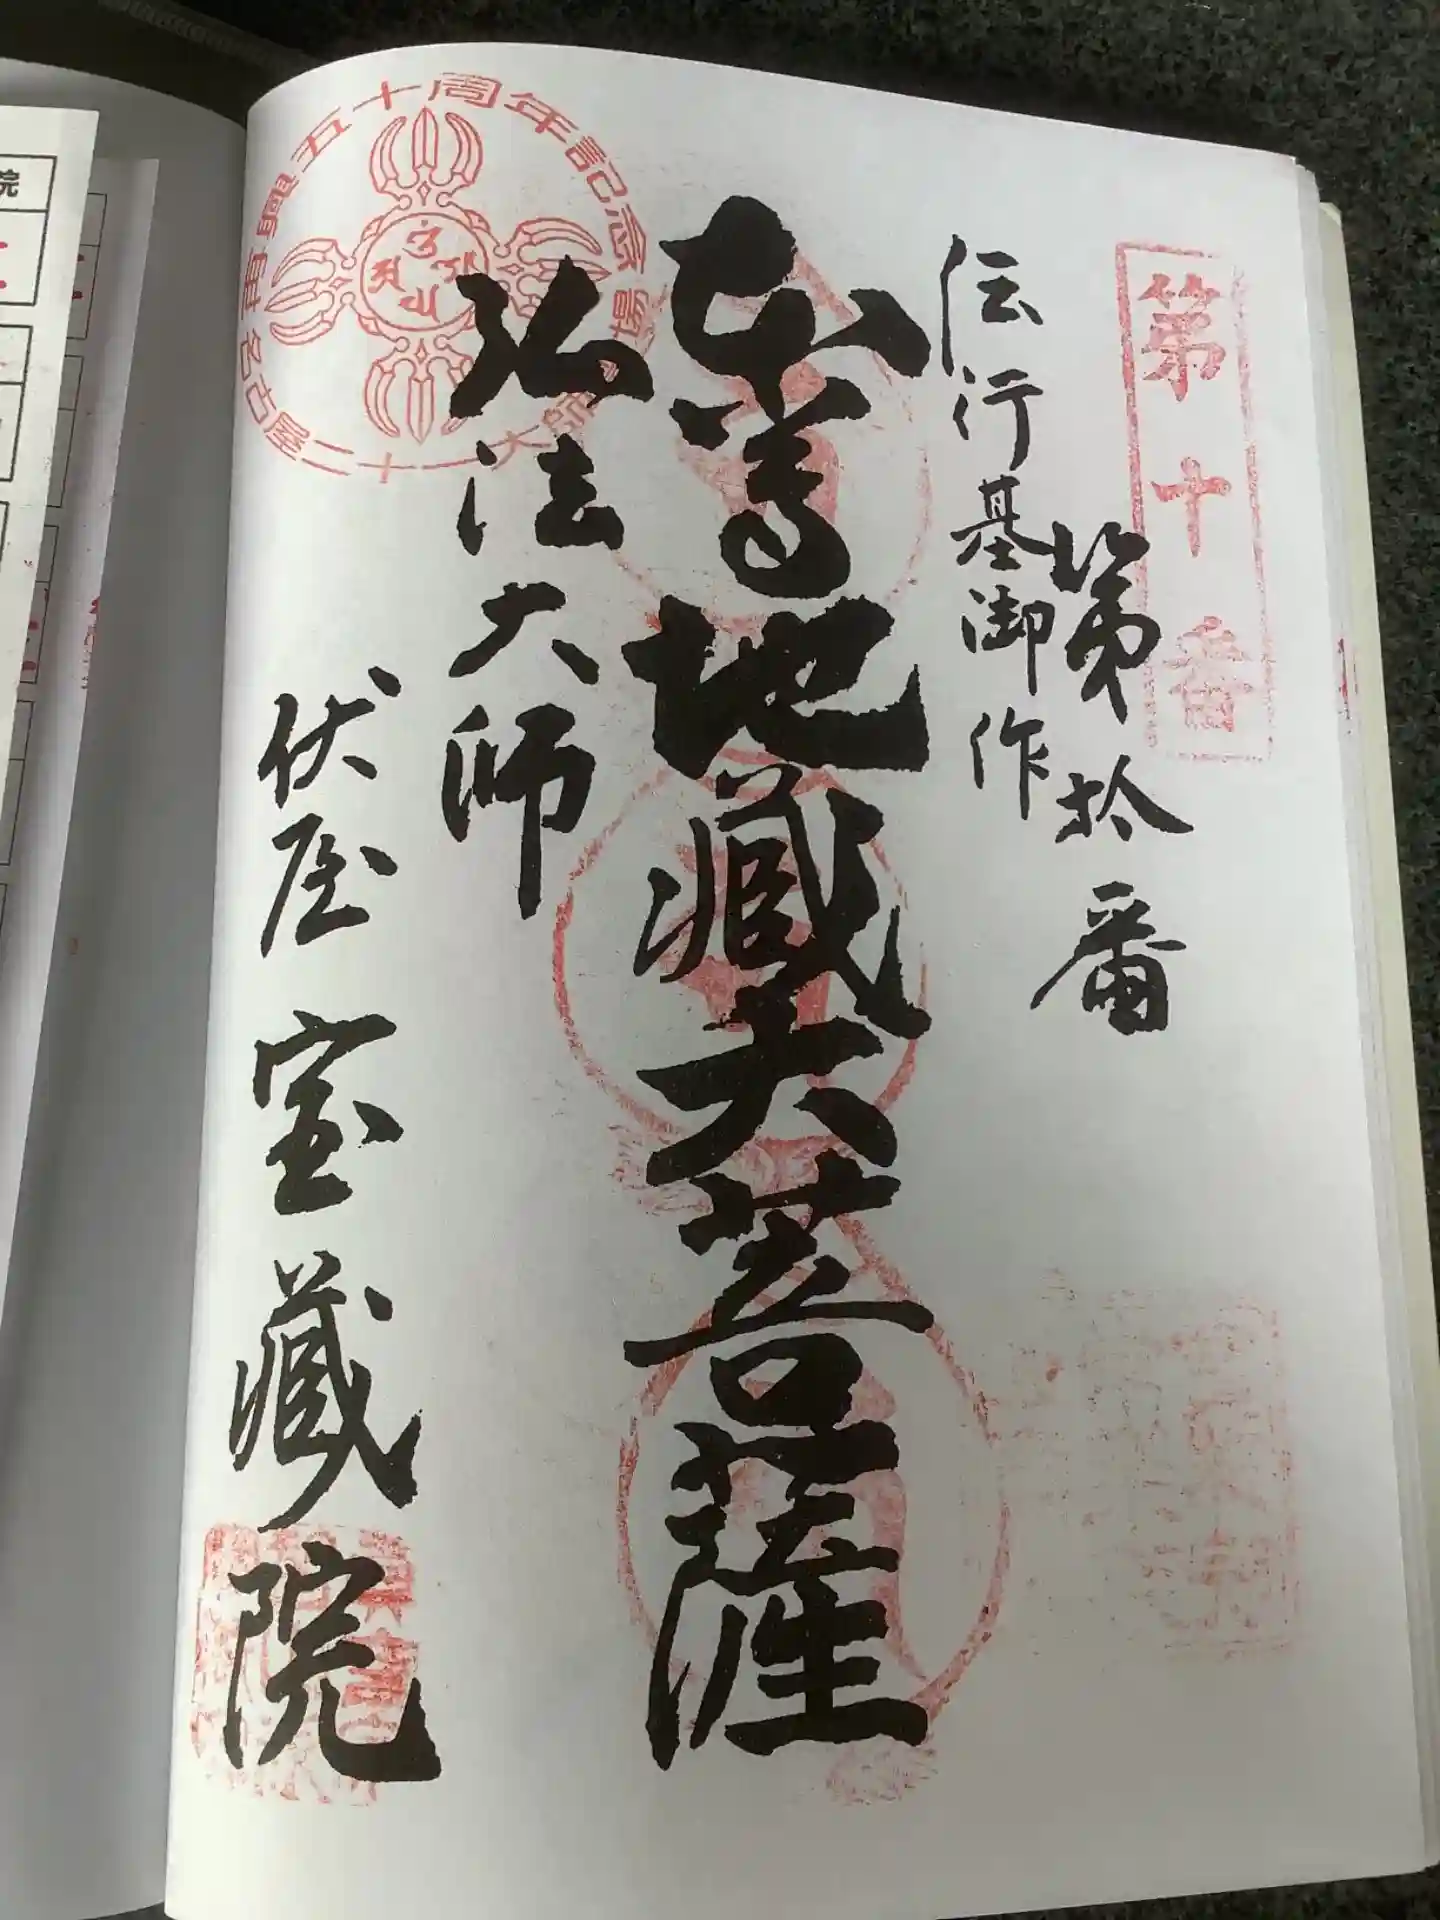 第十番
第拾番
伝行基御作
本尊地蔵大菩薩
弘法大師
伏屋 宝蔵院
興五十周年記念
名古屋二十一大師
場
院